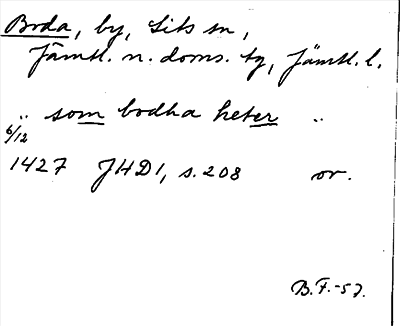 Boda, by, Lits sn,
Jämtl. n. doms. tg, Jämtl. l.
" som bodha heter "
6/12
1427 JHD1, s. 208 or.
B.F.-57.